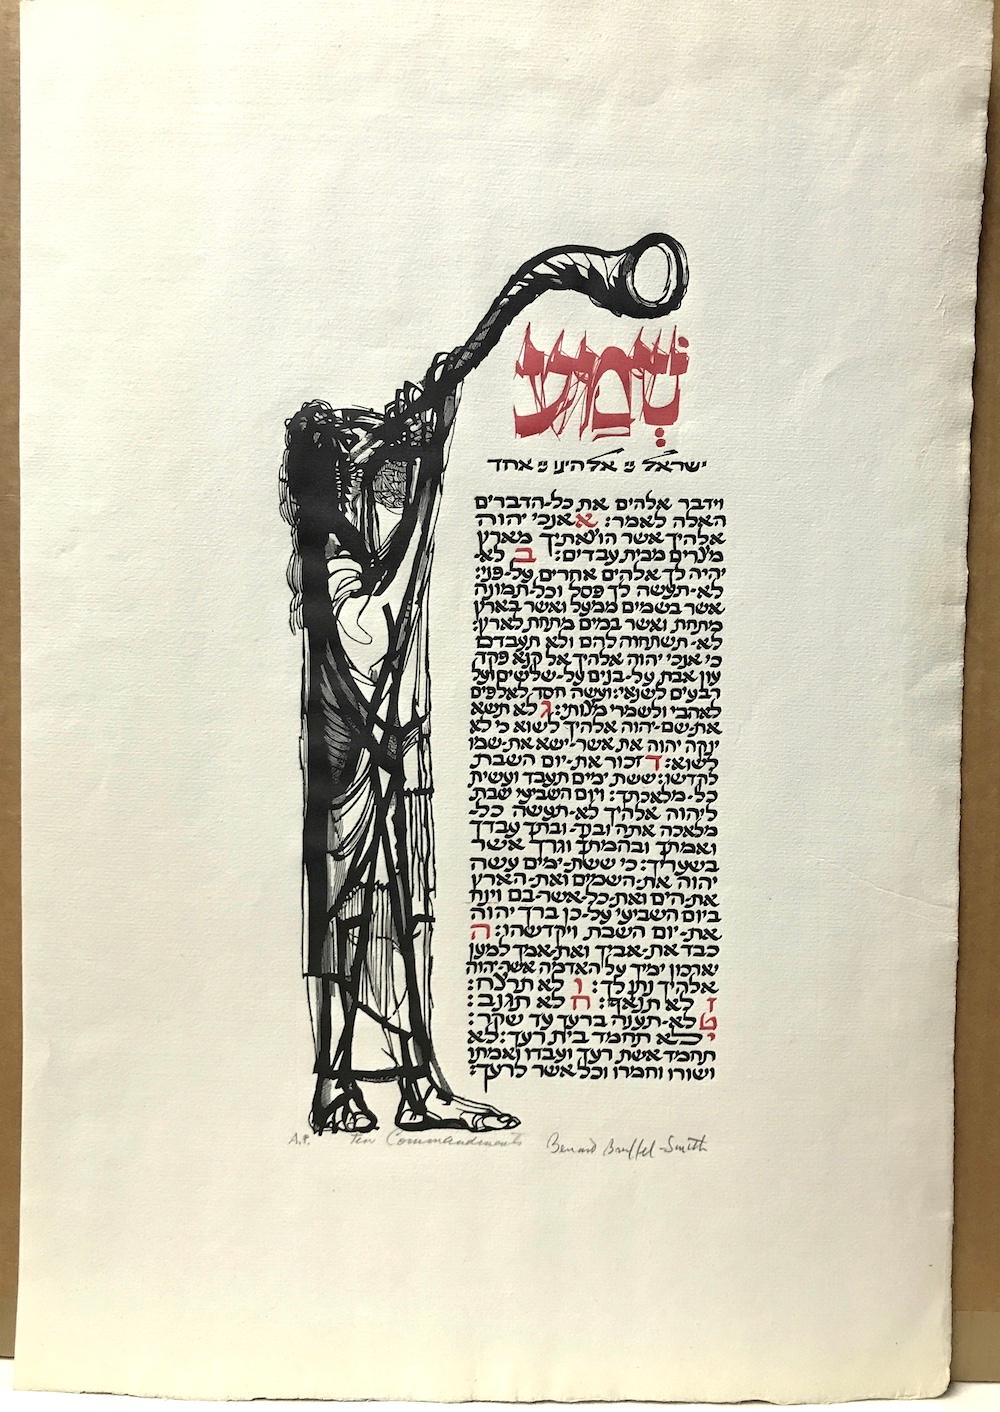 שְׁמַע
ישראל יי אלהינו יי אחד
וידבר אלהים את כל-הדברים
האלה לאמר: א אנכי יהוה
אלהיך אשר הוצאתיך מארץ
מצרים מבית עבדים: ב לא-
יהיה לך אלהים אחרים על-פני:
לא-תעשה לך פסל וכל-תמונה
אשר בשמים ממעל ואשר בארץ
מתחת ואשר במים מתחת לארץ:
לא-תשתחוה להם ולא תעבדם
כי אנכי יהוה אלהיך אל קנא פקד
עון אבת על-בנים על-שלשים ועל
רבעים לשנאי: ועשה חסד לאלפים
לאהבי ולשמרי מצותי: ג לא תשא
את-שם-יהוה אלהיך לשוא כי לא
ינקה יהוה את אשר-ישא את-שמו
לשוא: ד זכור את-יום השבת
לקדשו: ששת ימים תעבד ועשית
כל-מלאכתך: ויום השביעי שבת
ליהוה אלהיך לא-תעשה כל-
מלאכה אתה ובנך-ובתך עבדך
ואמתך ובהמתך וגרך אשר
בשעריך: כי ששת-ימים עשה
יהוה את-השמים ואת-הארץ
את-הים ואת-כל-אשר-בם וינח
ביום השביעי על-כן ברך יהוה
את-יום השבת ויקדשהו: ה
כבד את-אביך ואת-אמך למען
יארכון ימיך על האדמה אשר-יהוה
אלהיך נתן לך: ו לא תרצח:
ז לא תנאף: ח לא תגנב:
ט לא-תענה ברעך עד שקר:
י לא תחמד בית רעך: לא
תחמד אשת רעך ועבדו ואמתו
ושורו וחמרו וכל אשר לרעך:
A.P. Ten Commandments Bernard Bruffel-Smith